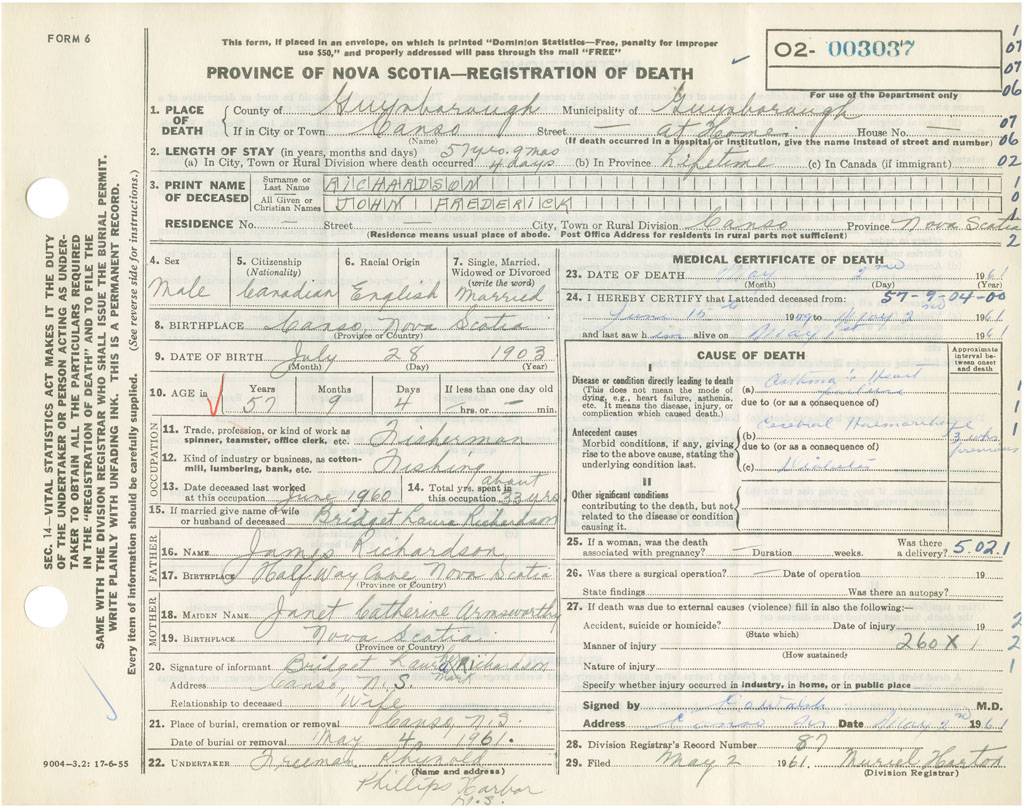 FORM 6
This form, if placed in an envelope, on which is printed "Dominion Statistics—Free, penalty for improper
use $50," and properly addressed will pass through the mail "FREE"
PROVINCE OF NOVA SCOTIA—REGISTRATION OF DEATH
O2- 003037
For use of the Department only
1
07
07
06
07
06
02
1. PLACE OF DEATH
County of Guysborough Municipality of Guysborough
If in City or Town Canso Street — at Home House No. —
(Name) (If death occurred in a hospital or institution, give the name instead of street and number)
2. LENGTH OF STAY (in years, months and days) 57 yrs. 9 mos
(a) In City, Town or Rural Division where death occurred 4 days (b) In Province Lifetime (c) In Canada (if immigrant)
3. PRINT NAME OF DECEASED
Surname or Last Name RICHARDSON
All Given or Christian Names JOHN FREDERICK
RESIDENCE No. — Street — City, Town or Rural Division Canso Province Nova Scotia
(Residence means usual place of abode. Post Office Address for residents in rural parts not sufficient)
4. Sex
Male
5. Citizenship (Nationality)
Canadian
6. Racial Origin
English
7. Single, Married, Widowed or Divorced (write the word)
Married
8. BIRTHPLACE Canso, Nova Scotia
(Province or Country)
9. DATE OF BIRTH July 28 1903
(Month) (Day) (Year)
10. AGE in
Years 57
Months 9
Days 4
If less than one day old
hrs. or — min.
OCCUPATION
11. Trade, profession, or kind of work as spinner, teamster, office clerk, etc. Fisherman
12. Kind of industry or business, as cotton-mill, lumbering, bank, etc. Fishing
13. Date deceased last worked at this occupation June 1960
14. Total yrs. spent in this occupation about 33 yrs
15. If married give name of wife or husband of deceased Bridget Laura Richardson
FATHER
16. NAME James Richardson
17. BIRTHPLACE Half Way Cove Nova Scotia
(Province or Country)
MOTHER
18. MAIDEN NAME Janet Catherine Armsworthy
19. BIRTHPLACE Nova Scotia
(Province or Country)
20. Signature of informant Bridget Laura X Richardson
mark
Address Canso N.S.
Relationship to deceased Wife
21. Place of burial, cremation or removal Canso N.S.
Date of burial or removal May 4 1961.
22. UNDERTAKER Freeman
(Name and address)
Phillips Harbor
N.S.
MEDICAL CERTIFICATE OF DEATH
23. DATE OF DEATH May 2nd 1961
(Month) (Day) (Year)
24. I HEREBY CERTIFY that I attended deceased from: 57-9-04-00
June 15th to May 2nd 1961
and last saw him alive on May 1st 1961
CAUSE OF DEATH
Approximate interval between onset and death
I
Disease or condition directly leading to death
(This does not mean the mode of dying, e.g., heart failure, asthenia, etc. It means the disease, injury, or complication which caused death.)
(a) Heart failure
due to (or as a consequence of)
Antecedent causes
Morbid conditions, if any, giving rise to the above cause, stating the underlying condition last.
(b) Cerebral Haemorrhage
3 wks previous
due to (or as a consequence of)
(c) Diabetes
II
Other significant conditions contributing to the death, but not related to the disease or condition causing it.
25. If a woman, was the death associated with pregnancy? — Duration weeks. Was there a delivery? 5.02.1
26. Was there a surgical operation? — Date of operation 19
State findings Was there an autopsy?
27. If death was due to external causes (violence) fill in also the following:—
Accident, suicide or homicide? Date of injury 19
(State which)
Manner of injury 260X
(How sustained)
Nature of injury
Specify whether injury occurred in industry, in home, or in public place
Signed by M.D.
Address Canso NS Date May 2nd 1961
28. Division Registrar's Record Number 87
29. Filed May 2 1961. Muriel Horton
(Division Registrar)
SEC. 14—VITAL STATISTICS ACT MAKES IT THE DUTY
OF THE UNDERTAKER OR PERSON ACTING AS UNDER-
TAKER TO OBTAIN ALL THE PARTICULARS REQUIRED
IN THE "REGISTRATION OF DEATH" AND TO FILE THE
SAME WITH THE DIVISION REGISTRAR WHO SHALL ISSUE THE BURIAL PERMIT.
WRITE PLAINLY WITH UNFADING INK. THIS IS A PERMANENT RECORD.
Every item of information should be carefully supplied. (See reverse side for instructions.)
9004—3.2: 17-6-55